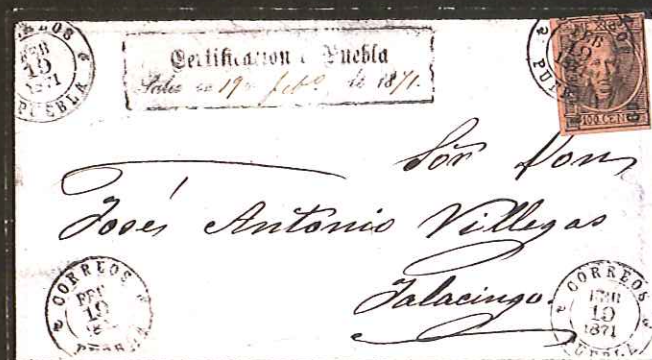 CORREOS
FEB
19
1871
PUEBLA
Certificacion de Puebla
Sale en 19 de feb.o de 1871.
FEB
19
PUEBLA
100 CEN
Sōr Don
José Antonio Villegas
Jalacingo.
CORREOS
FEB
19
PUEBLA
CORREOS
FEB
19
1871
PUEBLA